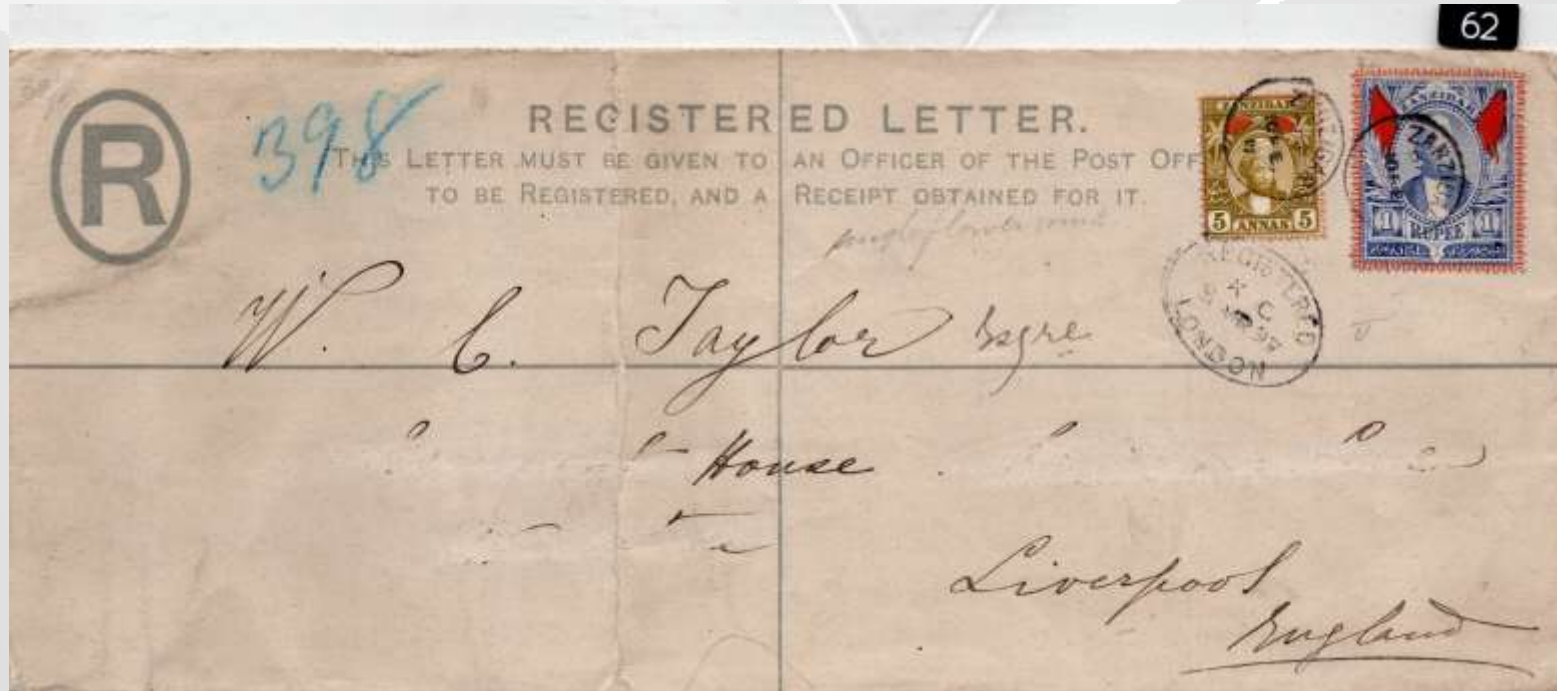 62
R
398
REGISTERED LETTER.
THIS LETTER MUST BE GIVEN TO AN OFFICER OF THE POST OFF
TO BE REGISTERED, AND A RECEIPT OBTAINED FOR IT.
ZANZIBAR
5 ANNAS 5
ZANZIBAR
1 RUPEE 1
ZANZIBAR
REGISTERED
LONDON
W. C. Taylor Esqre
House
Liverpool
England